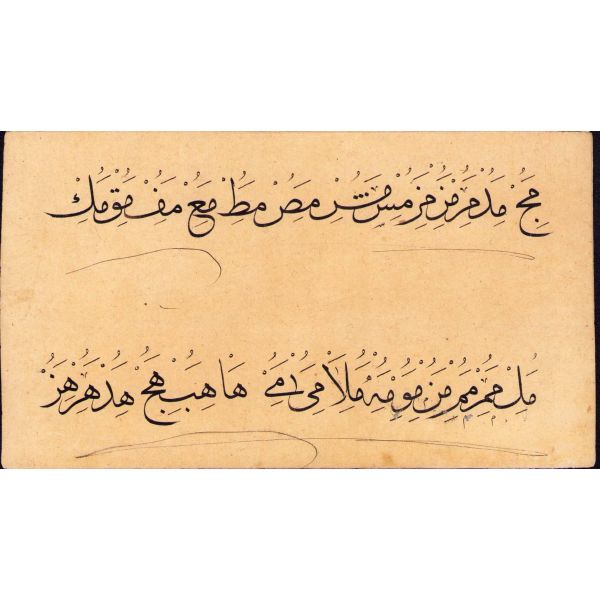 مج مد مر مز مر مس مش مص مط مع مف مق مك
مل مم مم من مو مه ملا مى مے ها هب هج هد هر هز